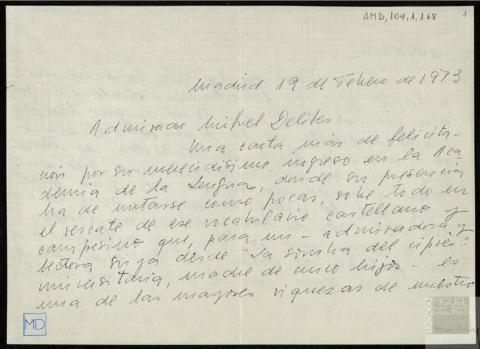 AMD, 104, 1, 168
1
Madrid 19 de Febrero de 1973
Admirado Miguel Delibes:
Una carta más de felicita-
ción por su merecidísimo ingreso en la Aca-
demia de la Lengua, donde su presencia
ha de notarse como pocas, sobre todo en
el rescate de ese vocabulario castellano y
campesino que, para mi - admiradora y
lectora suya desde "La sombra del ciprés",
universitaria, madre de cinco hijos - es
una de las mayores riquezas de nuestro
MD
MIGUEL
DELIBES